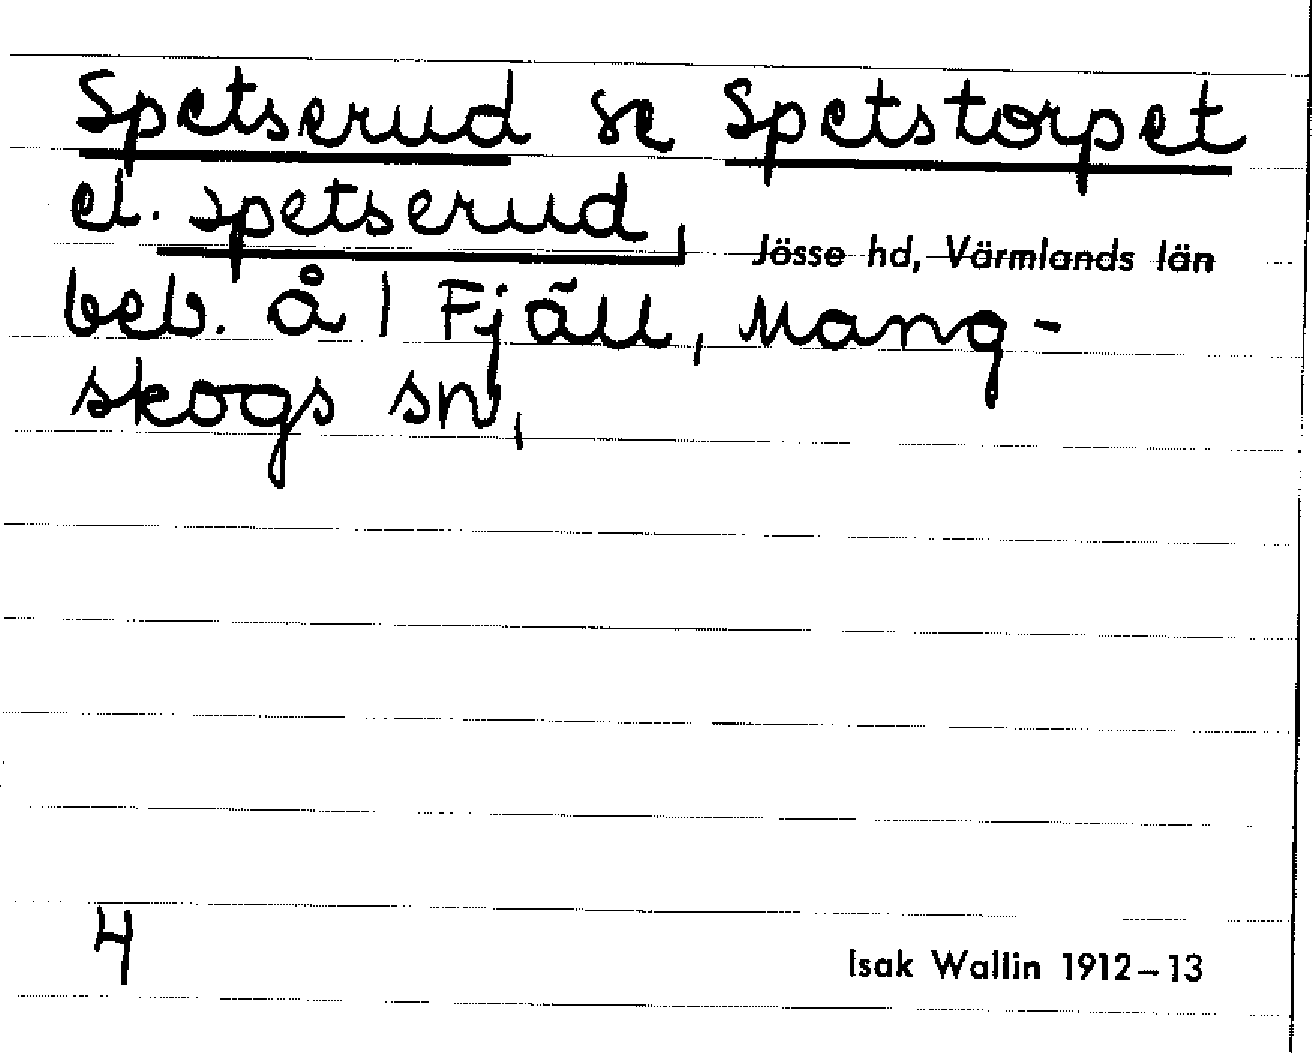 Spetserud se Spetstorpet
el. Spetserud, Jösse hd, Värmlands län
beb. å 1 Fjäll, Mang-
skogs sn,
4
Isak Wallin 1912-13